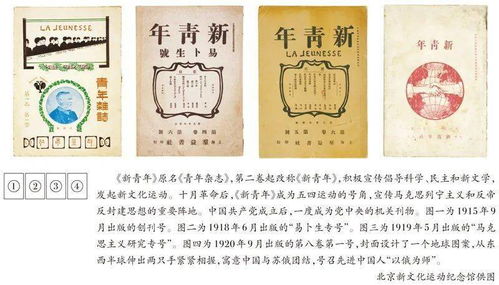 LA JEUNESSE
青年雜誌
第一卷 第一號
LA JEUNESSE
新青年
易卜生號
第四卷 第六號
上海羣益書社印行
LA JEUNESSE
新青年
第六卷 第五號
上海羣益書社印行
新青年
① ② ③ ④
《新青年》原名《青年杂志》,第二卷起改称《新青年》,积极宣传倡导科学、民主和新文学,
发起新文化运动。十月革命后,《新青年》成为五四运动的号角,宣传马克思列宁主义和反帝
反封建思想的重要阵地。中国共产党成立后,一度成为党中央的机关刊物。图一为1915年9
月出版的创刊号。图二为1918年6月出版的“易卜生专号”。图三为1919年5月出版的“马克
思主义研究专号”。图四为1920年9月出版的第八卷第一号,封面设计了一个地球图案,从东
西半球伸出两只手紧紧相握,寓意中国与苏俄团结,号召先进中国人“以俄为师”。
北京新文化运动纪念馆供图